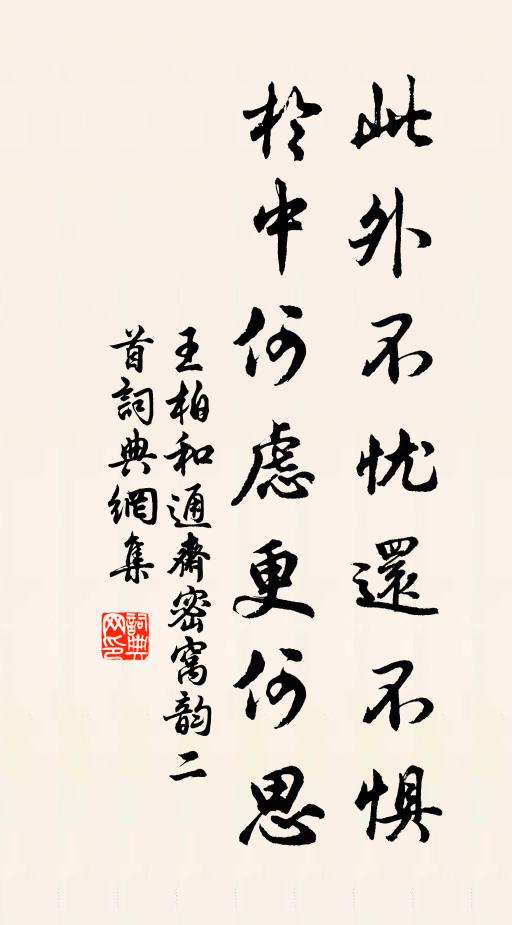 此外不忧還不惧
於中何慮更何思
王柏和通齋密窩韵二
首詞典網集
詞典
网印